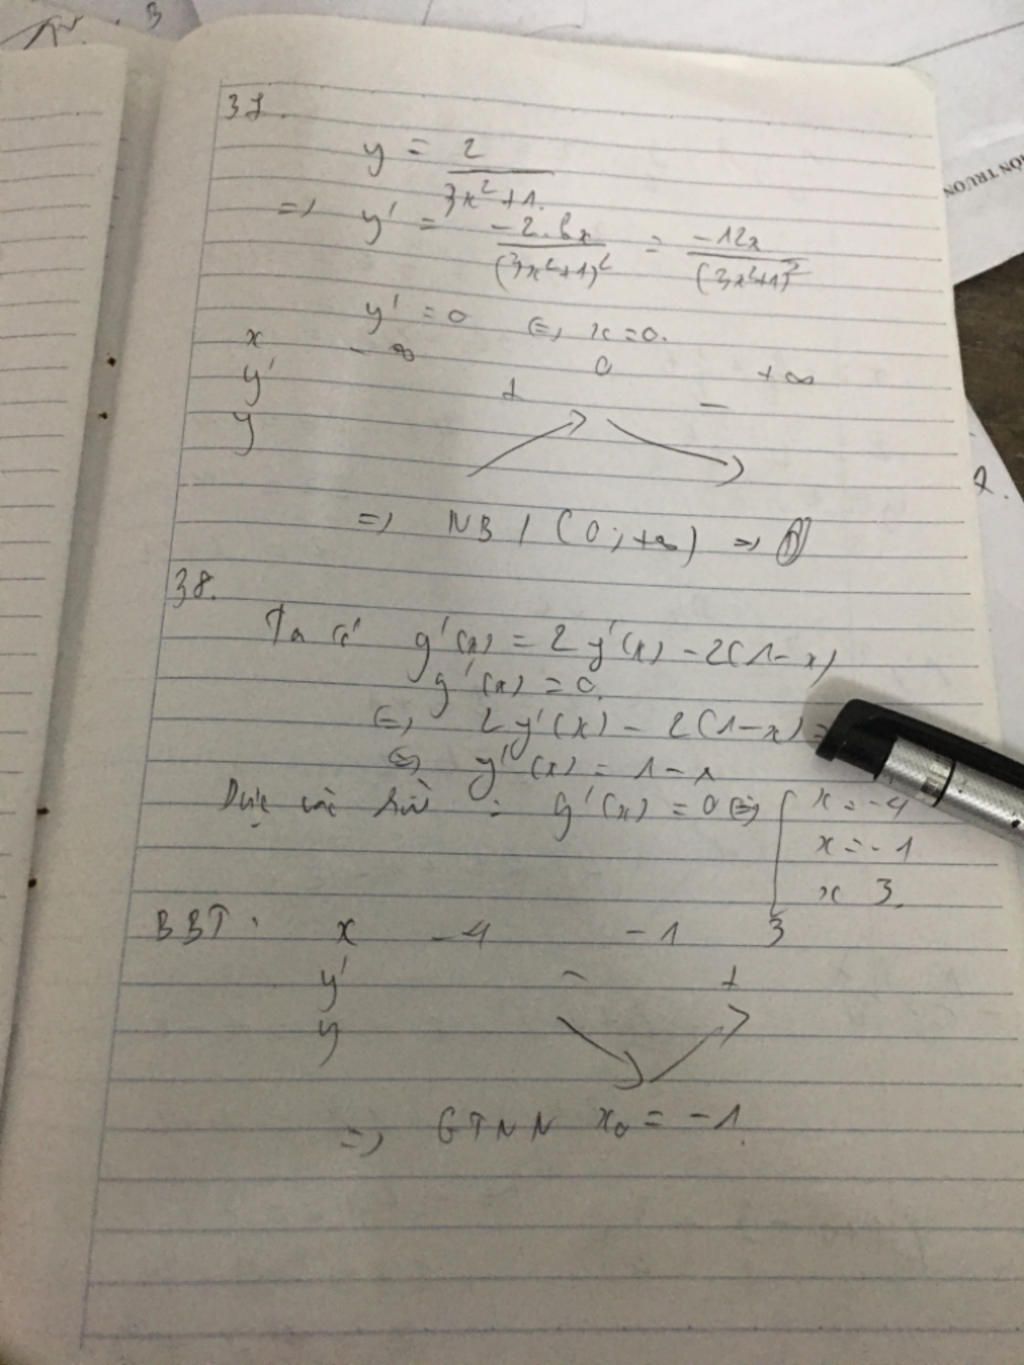 B
ÔN TRƯƠN
37.
y = 2 / 3x²+1.
=> y' = -2.6x / (3x²+1)² = -12x / (3x²+1)²
y' = 0 <=> x = 0.
x -∞ 0 +∞
y' + -
y
=> NB / (0; +∞) =>
2.
38.
Ta có g'(x) = 2y'(x) - 2(1-x)
g'(x) = 0.
<=> 2y'(x) - 2(1-x) =
<=> y'(x) = 1-x
Dựa vào : g'(x) = 0 <=> [ x = -4
x = -1
x 3.
BBT: x -4 -1 3
y' - +
y
=> GTNN x₀ = -1.